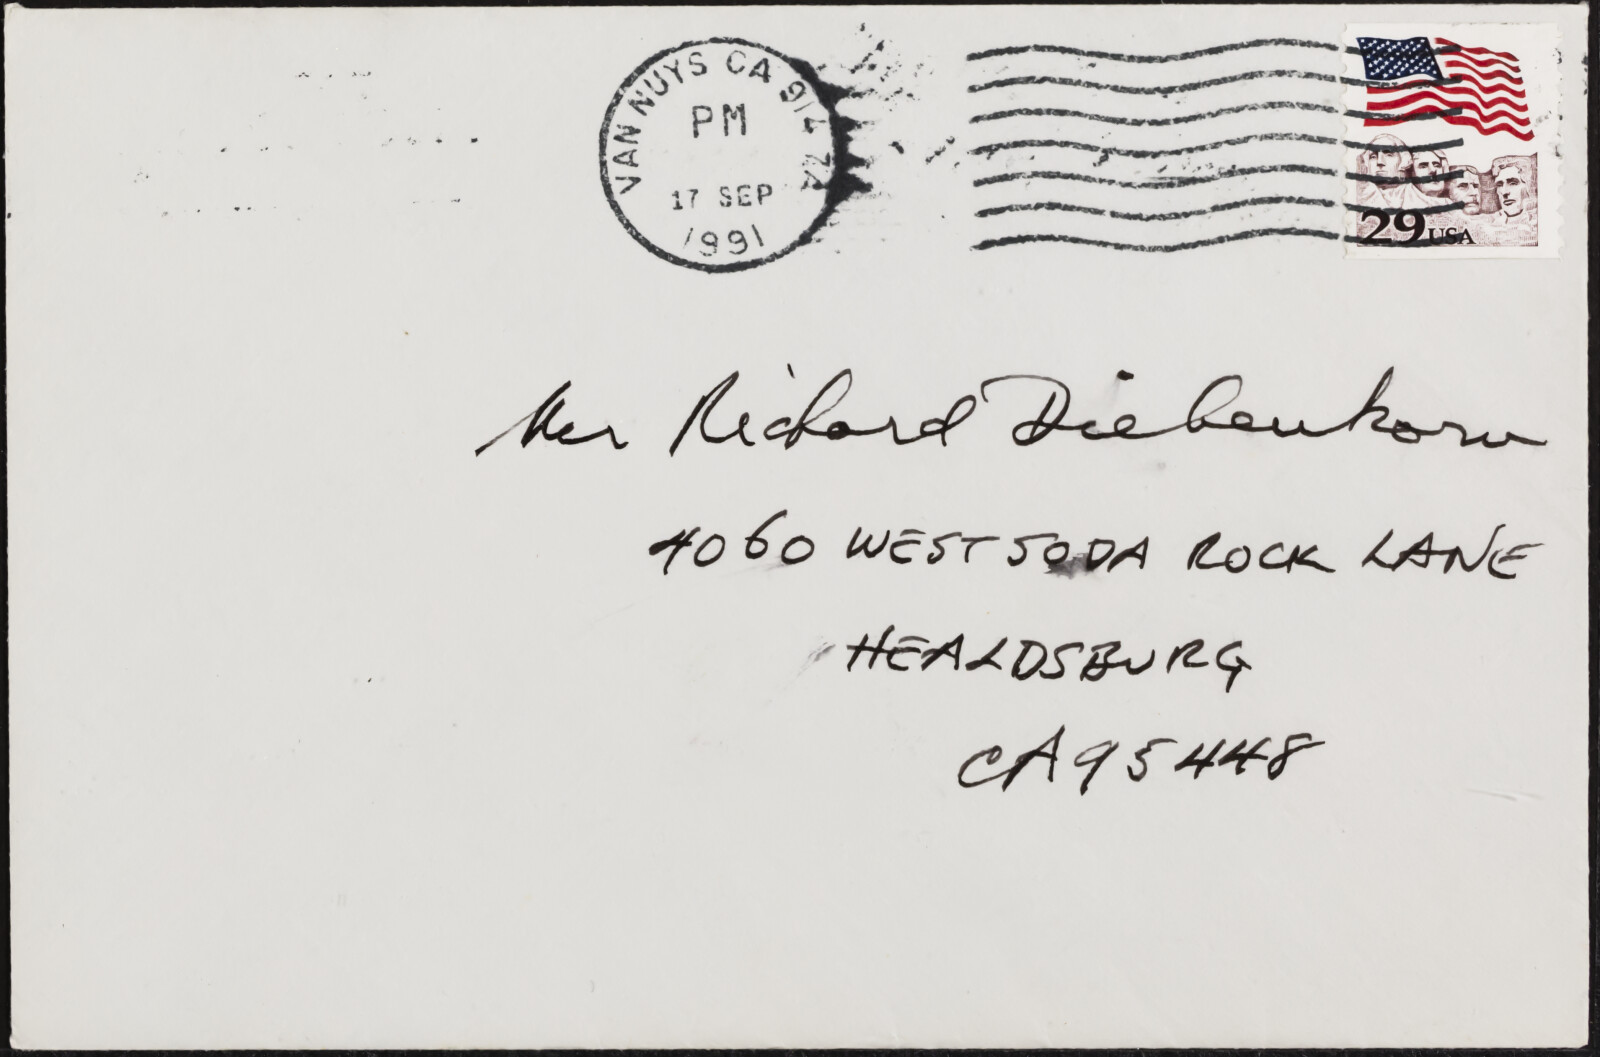 VAN NUYS CA
PM
17 SEP
1991
29 USA
Mr Richard Diebenkorn
4060 WEST SODA ROCK LANE
HEALDSBURG
CA 95448